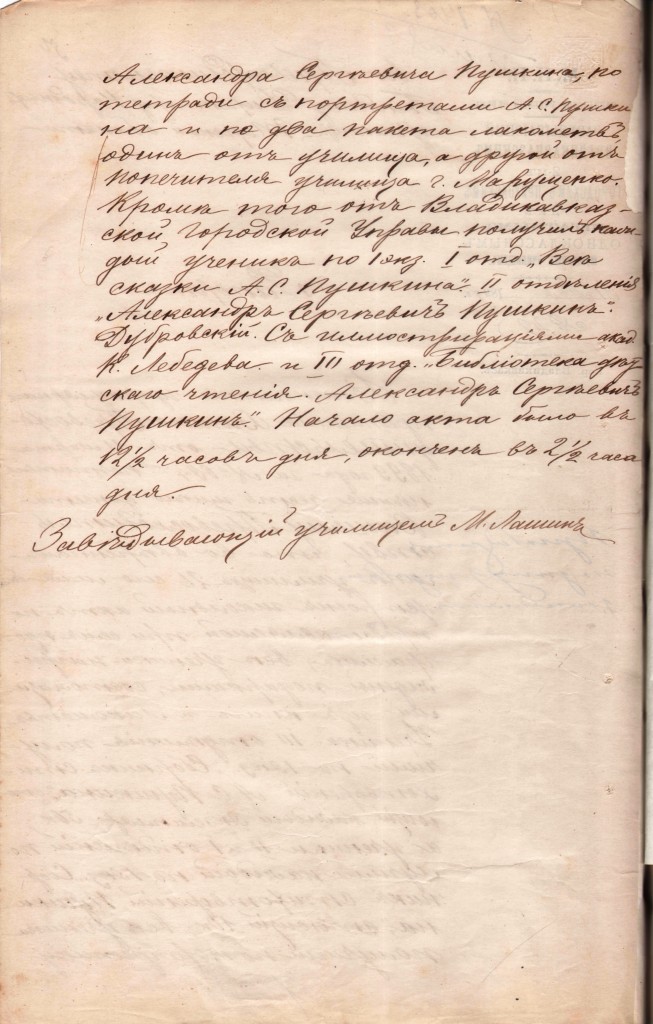 Александра Сергѣевича Пушкина, по
тетради съ портретами А. С. Пушки
на и по два пакета лакомствъ,
одинъ отъ училища, а другой отъ
попечителя училища г. Марущенко.
Кромѣ того отъ Владикавказ-
ской Городской Управы получилъ каж
дый ученикъ по 1 экз. I отд. „Всѣ
сказки А. С. Пушкина“. II отдѣленія
„Александръ Сергѣевичъ Пушкинъ“.
Дубровскій. Съ иллюстраціями акад.
К. Лебедева. и III отд. „Библіотека дѣт
скаго чтенія. Александръ Сергѣевичъ
Пушкинъ“. Начало акта было въ
12 1/2 часовъ дня, оконченъ въ 2 1/2 часа
дня.
Завѣдывающій училищемъ М. Лашинъ